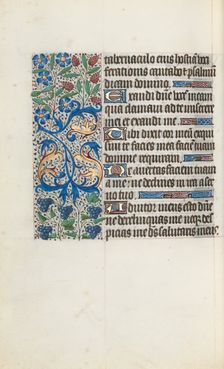 tabernaculo eius hostiam voci
ferationis cantabo et psalmum
dicam domino.
Exaudi dne vocem meam
qua clamavi ad te miserere
mei et exaudi me.
Tibi dixit cor meum exqui
sivi te facies mea faciem tuam
domine requiram.
Ne avertas faciem tuam
a me: ne declines in ira a ser
vo tuo.
Adiutor meus esto dne
ne derelinquas me neque des
picias me ds salutaris meus.